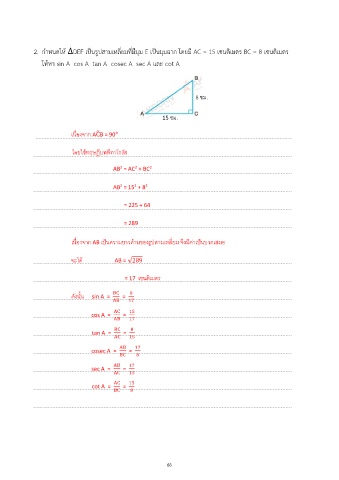 2. กำหนดให้ ΔDEF เป็นรูปสามเหลี่ยมที่มีมุม E เป็นมุมฉาก โดยมี AC = 15 เซนติเมตร BC = 8 เซนติเมตร
ให้หา sin A cos A tan A cosec A sec A และ cot A
B
8 ซม.
A
C
15 ซม.
เนื่องจาก AĈB = 90°
โดยใช้ทฤษฎีบทพีทาโกรัส
AB² = AC² + BC²
AB² = 15² + 8²
= 225 + 64
= 289
เนื่องจาก AB เป็นความยาวด้านของรูปสามเหลี่ยม จึงมีค่าเป็นบวกเสมอ
จะได้ AB = √289
= 17 เซนติเมตร
ดังนั้น sin A = BC/AB = 8/17
cos A = AC/AB = 15/17
tan A = BC/AC = 8/15
cosec A = AB/BC = 17/8
sec A = AB/AC = 17/15
cot A = AC/BC = 15/8